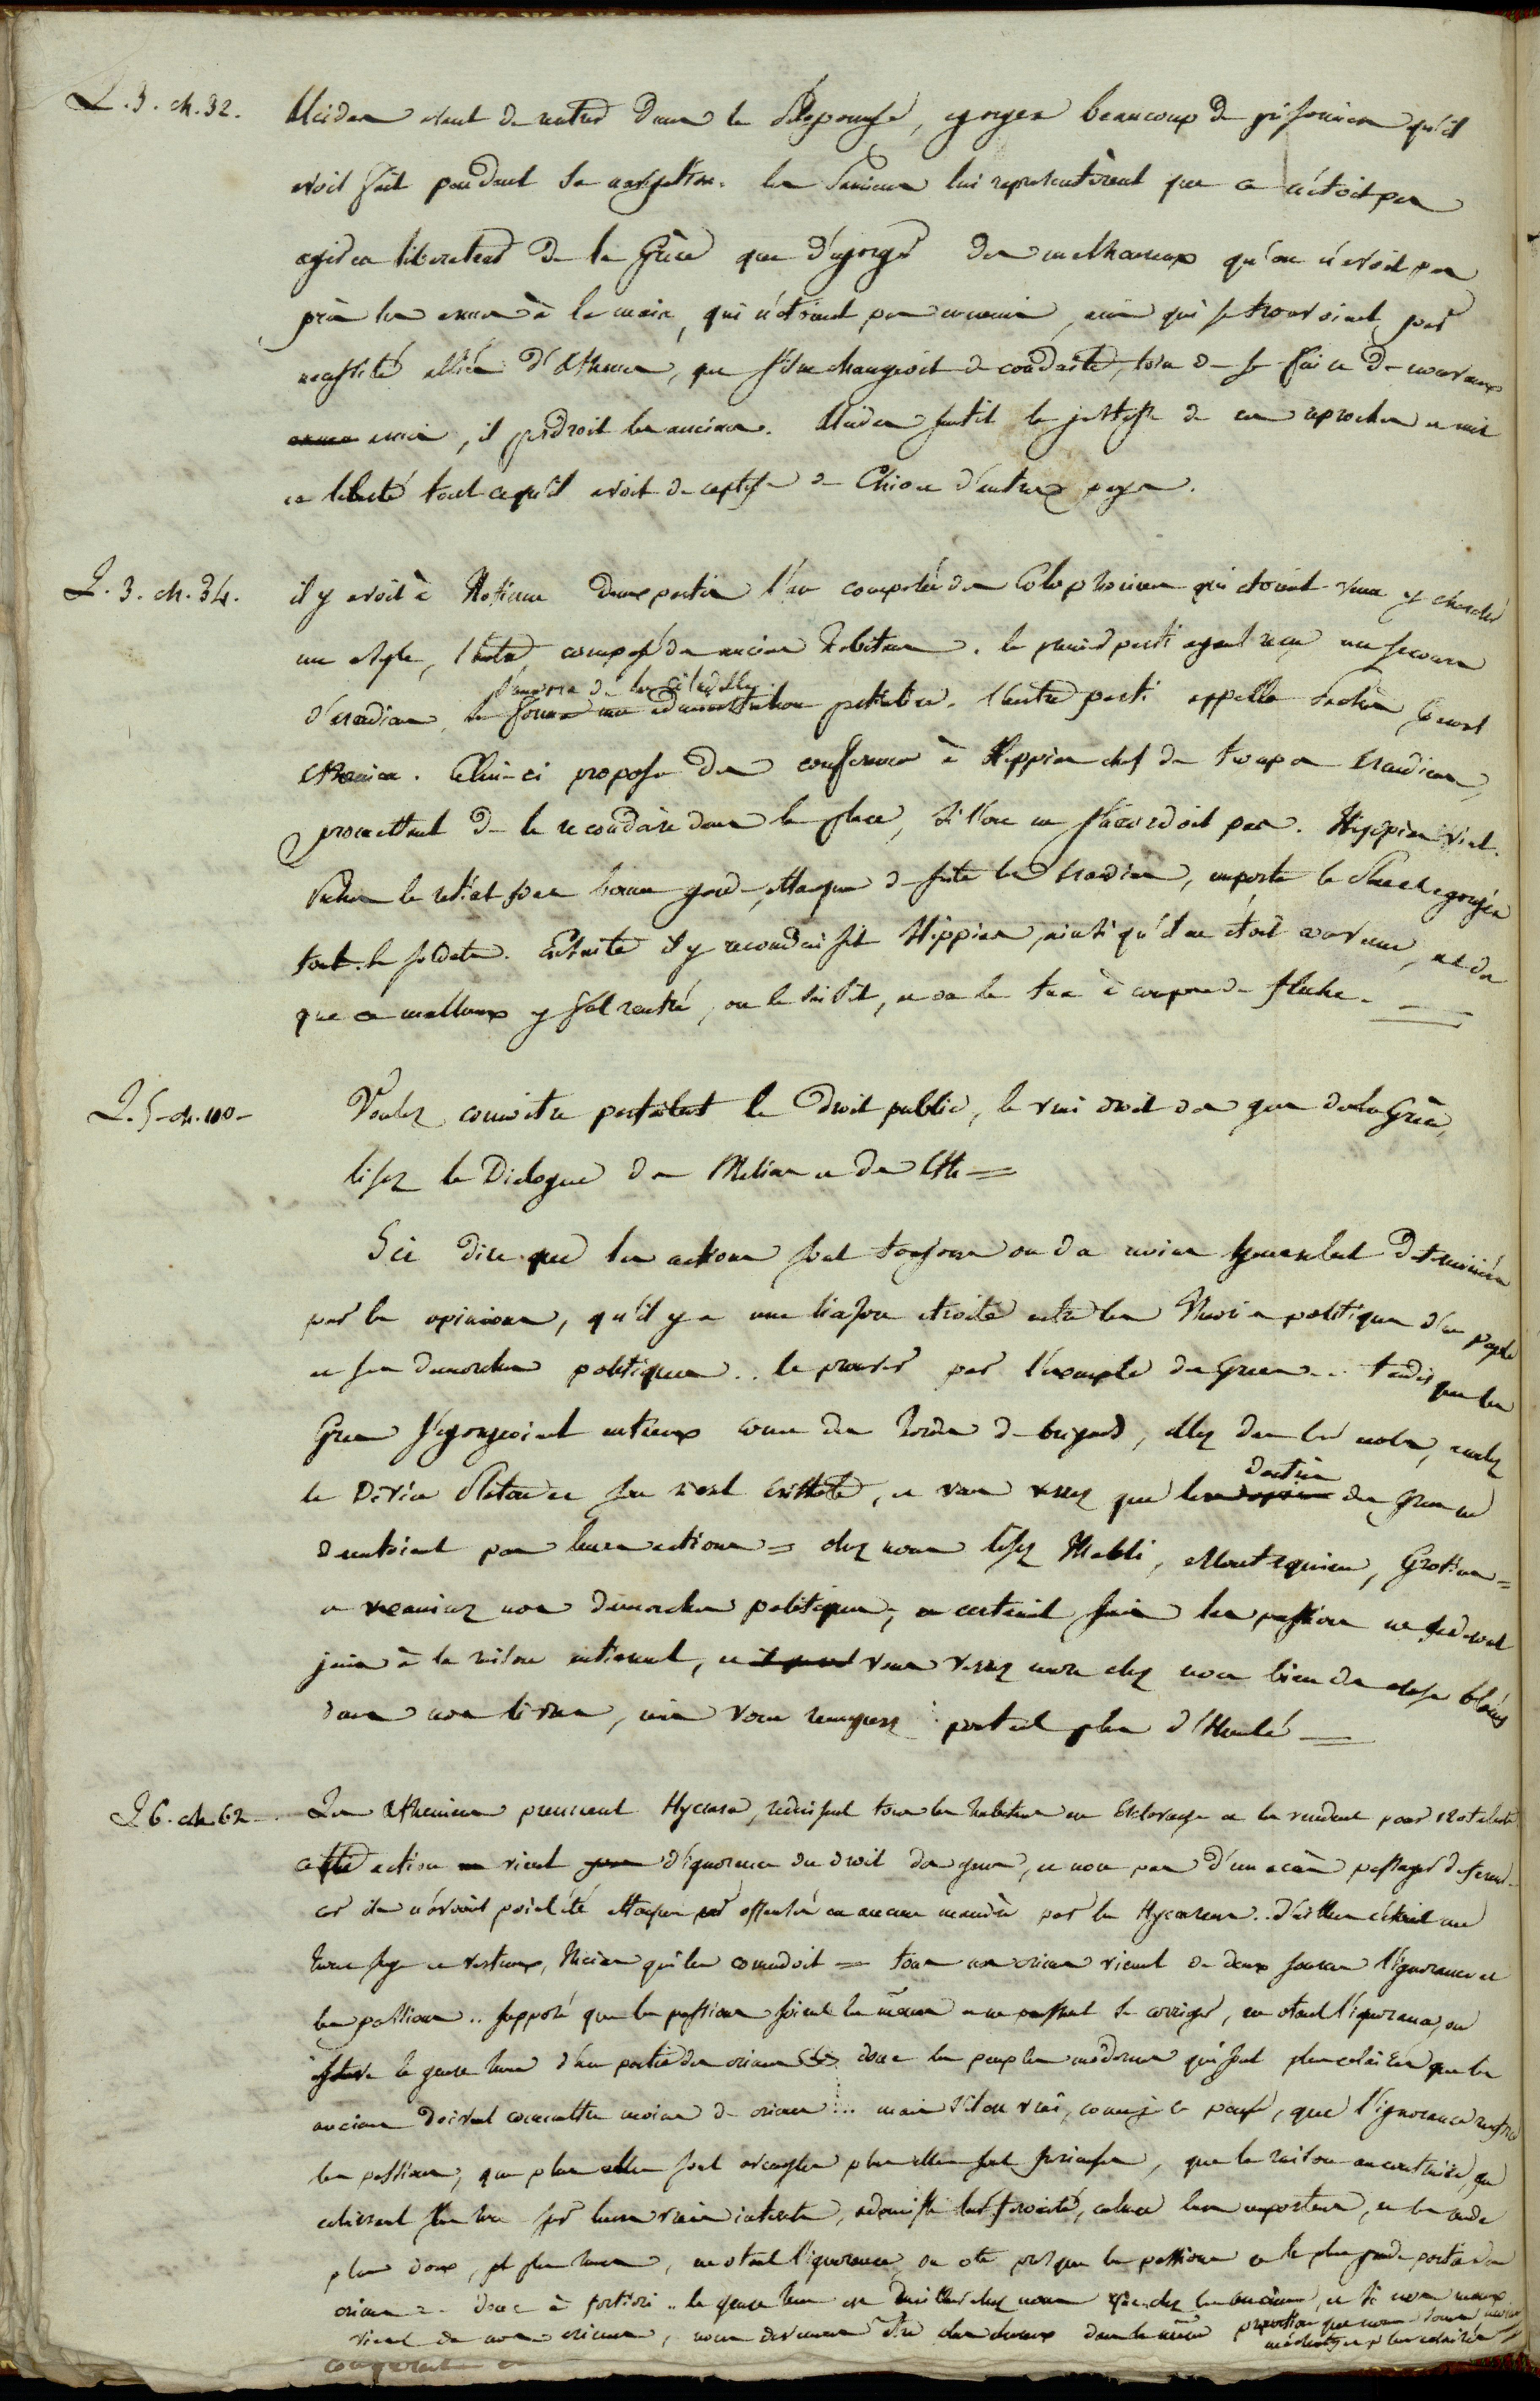 L. 3. ch. 32. Alcidas avant de rentrer dans le Péloponese, egorgea beaucoup de prisonniers qu'il
avoit fait pendant sa navigation. les Samiens lui representèrent que ce n'étoit pas
agir en liberateur de la Grèce que d'égorger des malheureux qu'on n'avoit pas
pris les armes à la main, qui n'étoient pas ennemis, mais qui se trouvoient par
necessité alliés d'Athenes, que s'il ne changeoit de conduite, loin de se faire de nouveaux
amis, il perdroit les anciens. Alcidas sentit la justesse de ces reproches et mit
en liberté tout ce qu'il avoit de captifs de Chio et d'autres pays.
L. 3. ch. 34. il y avoit à Notium deux partis l'un composé des Colophoniens qui étoient venus y chercher
un asyle, l'autre composé des anciens habitans. le premier parti ayant reçu un secours
s'empara de la citadelle
d'arcadiens, l'autre parti appella Pachès General
Athenien. Celui-ci proposa des conferences à Hippias chef des troupes arcadiennes,
promettant de le reconduire dans la place, si l'on ne s'accordoit pas. Hippias vint.
Pachès le retient sous bonne garde, attaque de suite les arcadiens, emporte la place et egorgea
tout les soldats. Ensuite il y reconduisit Hippias, ainsi qu'il en étoit convenu, et dès
que ce malheureux y fut rentré, on le saisit, et on le tua à coups de fleches.
L. 5. ch. 110. Voulez connoitre parfaitement le droit public, le vrai droit des gens de la Grèce,
lisez le Dialogue des Meliens et des Ath =
Ici dire que les actions sont toujours ou du moins generalement determinées
par les opinions, qu'il y a une liaison étroite entre les theories politiques d'un peuple
et ses demarches politiques .. le prouver par l'exemple des Grecs ... tandis que les
Grecs s'égorgeoient entr'eux comme des hordes de brigands, allez dans les ecoles, ecoutez
le Divin Platon et son rival Aristote, et vous verrez que
doctrine
des grecs ne
dementoient pas leurs actions = chez nous lisez Mabli, Montesquieu, Grotius =
et examinez nos demarches politiques,
dans nos livres, mais vous remarquerez partout plus d'humanité
L. 6. ch. 62. Les Atheniens prennent Hycara, reduisent tous les habitans en Esclavage et les vendent pour 120 talents
cette action vient d'ignorance du droit des gens, et non pas d'un accès passager de fureur
car ils n'avoient point été attaqués ni offensés en aucune manière par les Hycariens .. d'ailleurs c'étoit un
homme sage et vertueux, Nicias qui les commandoit = tous nos crimes viennent de deux sources l'ignorance et
les passions .. supposé que les passions soient les mêmes et ne puissent se corriger, en otant l'ignorance, on
le genre humain d'une partie des crimes donc les peuples modernes qui sont plus eclairés que les
anciens doivent commettre moins de crimes ... mais s'il est vrai, comme je le pense, que l'ignorance
les passions, que plus elles sont aveugles plus elles sont furieuses, que la raison au contraire en
eclairant les hommes sur leurs vrais interets, adoucit leur ferocité, calme leurs emportemens, et les rende
plus doux, et plus humains, en otant l'ignorance on ote presque les passions et la plus grande partie des
crimes = donc à fortiori .. le genre humain est meilleur chez nous que chez les anciens, et si nos maux
vient de nos crimes, nous devenons être plus heureux dans la même proportion que nous sommes moins